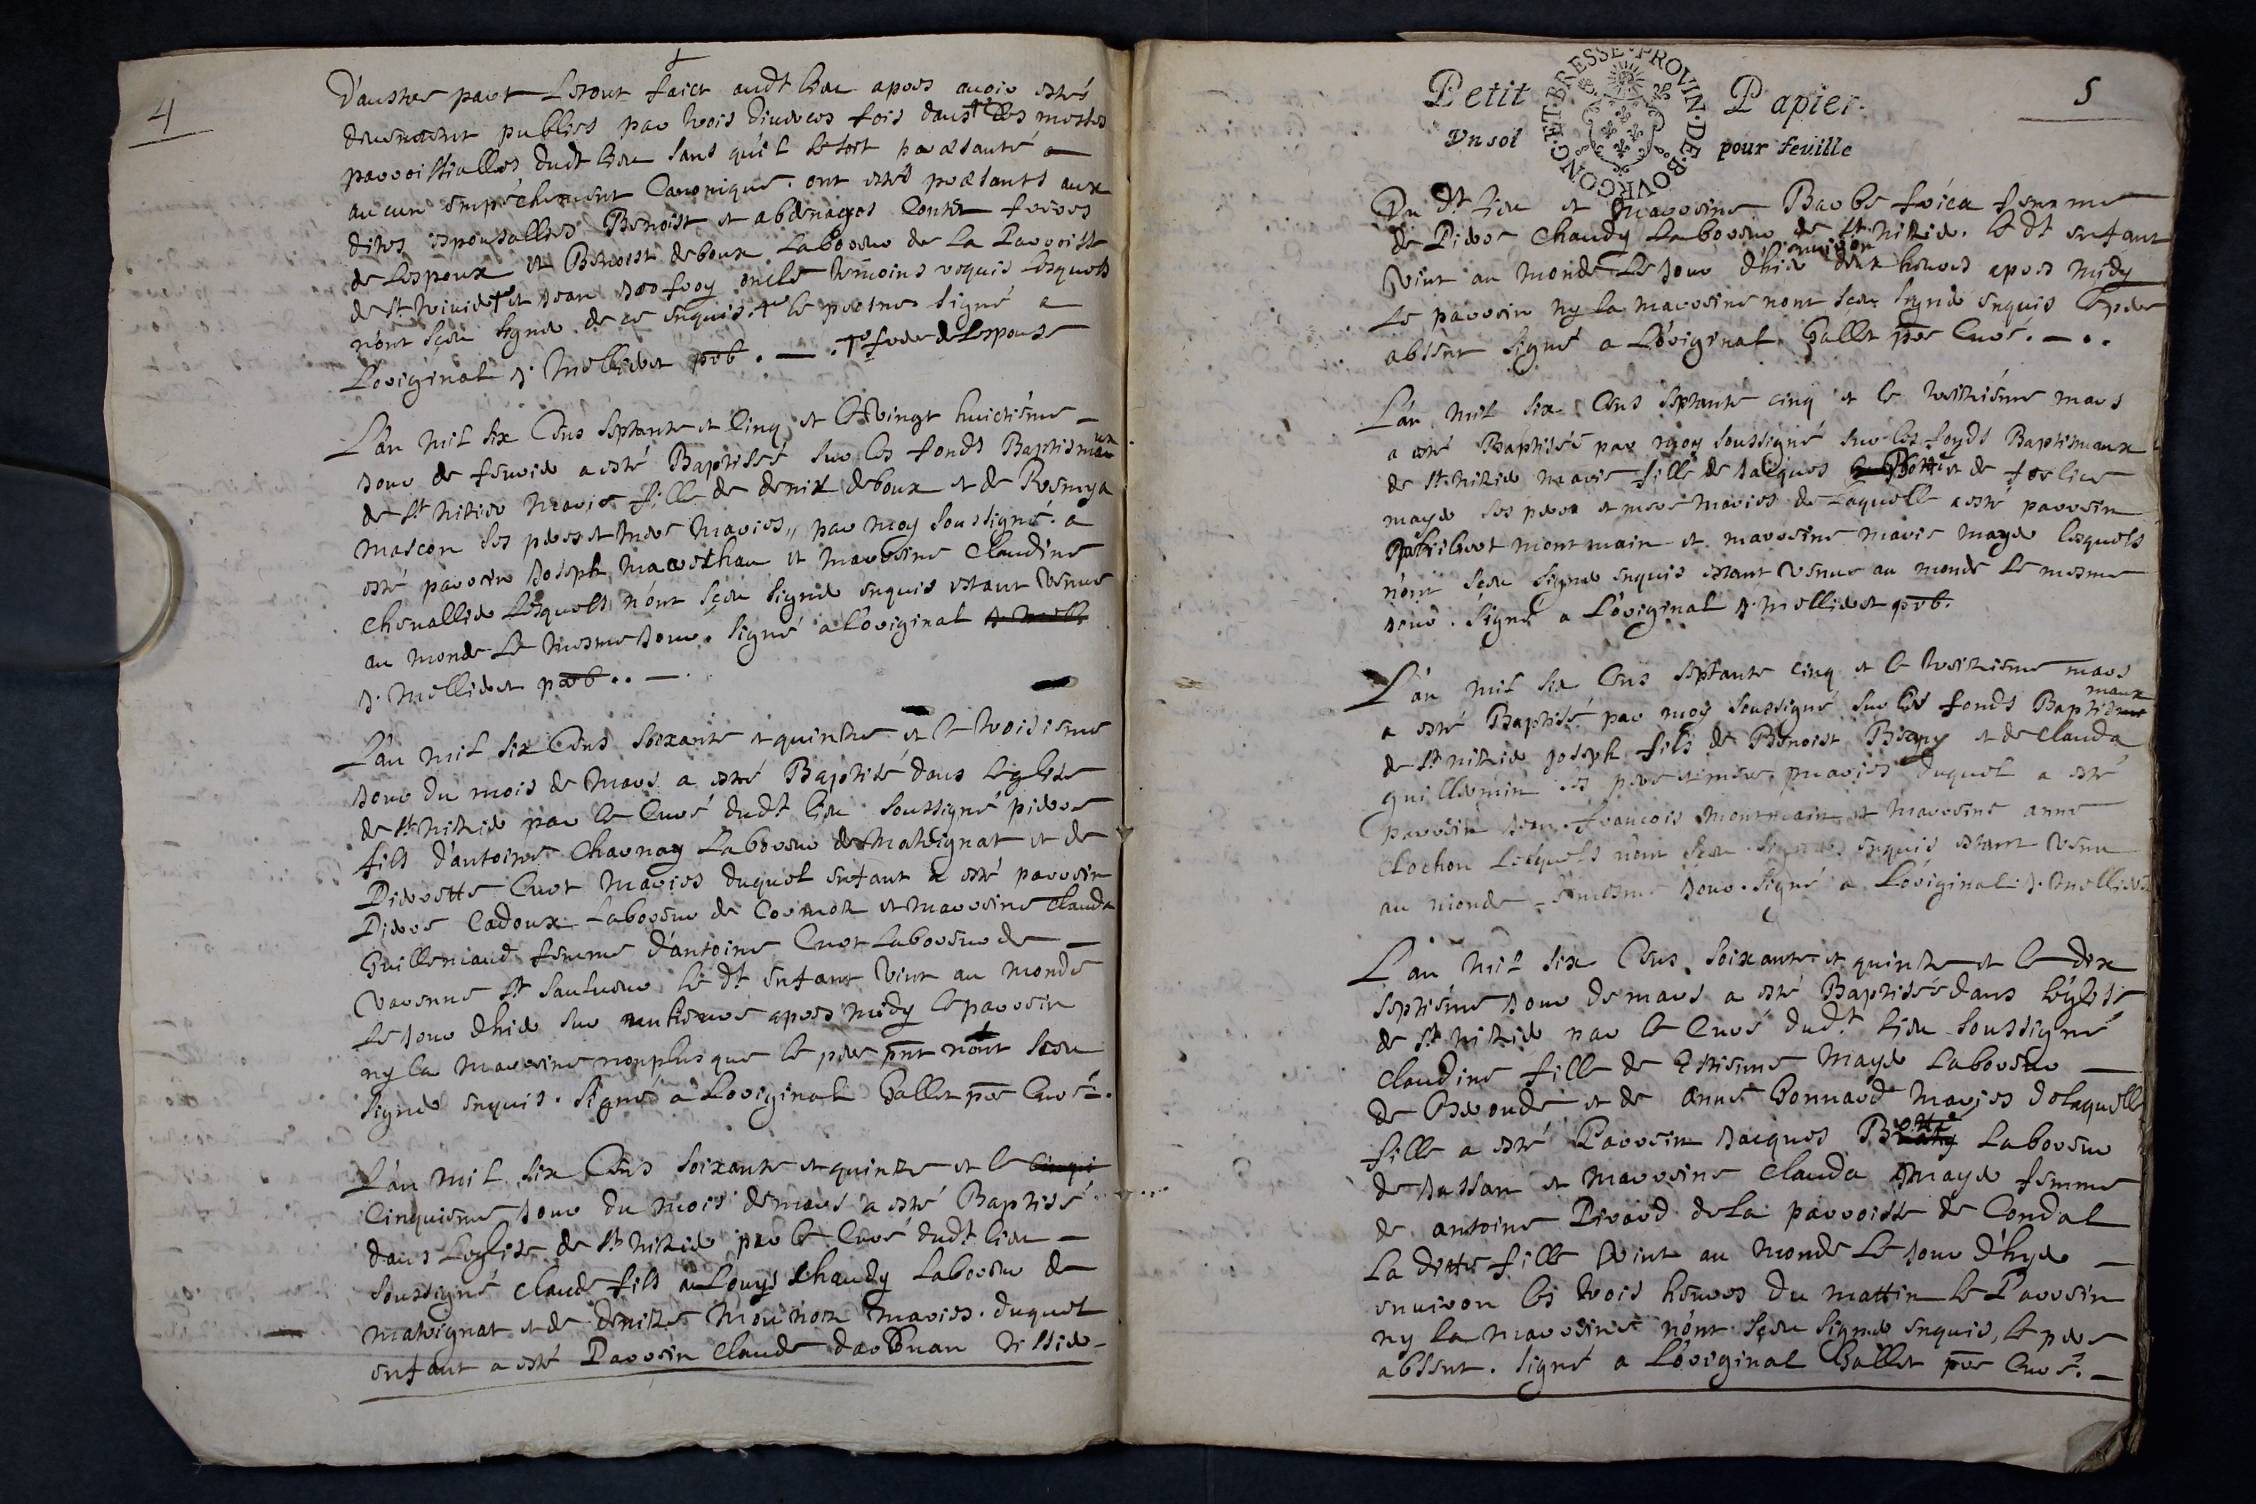 4
d'austre part Le tout faict audt lieu apres avoir estés
deuement publies par trois diverses fois dans les messes
parroissialles dudt lieu sans qu'il se soit præsanté
aucun empéchement Canonique. ont estés præsants aux
dites espousallies Benoist et abdenagos Contet freres
de Lespoux et Benoist deboux Laboureur de La Parroisse
de St et Jean oncle temoins requis Lesquels
n'ont sçeu signer de ce enquis. le præstre signé a
L'original J. Mellieret pbr. — . frere de Lespouse
L'an mil six Cens septante et Cinq et le vingt huictiéme
Jour de fevrier a esté Baptisée sur les fonds Baptismaux
de St nizier marie fille de denix deboux et de Romeya
mascon ses pere et mere Maries, par moy soussigné. a
esté parrein Joseph Mareschau et marreine Claudine
Chevallier Lesquels n'ont sçeu signer enquis estant venue
au monde Le mesme Jour. signé a l'original J. Mell
J. Mellieret pbr..—.
L'an mil six Cens soixante et quinze et le troisieme
Jour du mois de mars a esté Baptisé dans l'eglise
de St nizier par le Curé dudt lieu soussigné pierre
fils d'antoine Charnay Laboureur de Malvignat et de
Pierrette Curt Maries duquel enfant a esté parrein
Pierre Cadoux Laboureur de Cormoz et marreine Clauda
Guillemaud femme d'antoine Curt Laboureur de —
Varenne St sauveur le dt enfant vint au monde
le Jour d'hier sur apres midy le parrein
ny la marreine nonplus que le pere pnt n'ont sceu
signer enquis. signés a Loriginal Gallet pre Curé.
L'an mil six Cens soixante et quinze et le cinqui
Cinquieme Jour du mois de mars a esté Baptisé
dans Leglise de St nizier par le Curé dudt lieu —
soussigné claude fils a Louys Chandy Laboureur de
malvignat et de denize Mounon maries. duquel
enfant a esté Parrein Claude
Petit Papier. 5
Un sol pour feuille
BOURGONG·ET·BRESSE·PROVIN·DE·
Du dt lieu et Marreine Barbe femme
de Pierre Chandy Laboureur de St nizier. le dt enfant
vint au monde Le Jour d'hier environ deux heures apres midy
Le parrein ny la marreine nont sçeu signer enquis le pere
absent signé a L'original Gallet pre Curé. — . .
L'an mil six Cens septante cinq et le treiziéme mars
a esté Baptisée par moy soussigné sur les fonds Baptismaux
de St nizier marie fille de Jacques Botti et de
mayer ses pere et mere maries de Laquelle a esté parrein
philibert montmain et marreine marie mayer lesquels
n'ont sçeu signer enquis estant venue au monde Le mesme
Jour. signé a L'original J. Mellieret pbr.
L'an mil six Cens septante cinq et le treiziéme mars
a esté Baptisé par moy soussigné sur les fonds Baptismaux
de St nizier Joseph fils de Benoist et de Clauda
guillemin ses pere et mere maries duquel a esté
parrein Jean-francois montmain et marreine anne
Clochon Lesquels n'ont sçeu signer enquis estant venu
au monde le mesme Jour. signé a L'original J. Mellieret
L'an mil six Cens soixante et quinze et le dix
septiéme Jour de mars a esté Baptisée dans l'église
de St nizier par le Curé dudt lieu soussigné
Claudine fille de Estienne Mayer Laboureur —
de et de Anne Bonnard maries de laquelle
fille a esté Parrein Jacques Botti Laboureur
de Jassan et Marreine Clauda Mayer femme
de antoine Pirard de la parroisse de Condal
La ditte fille vint au monde Le Jour d'hyer —
environ les trois heures du mattin Le Parrein
ny la marreine n'ont sçeu signer enquis, le pere
absent. signé a L'original Gallet pre Curé. —